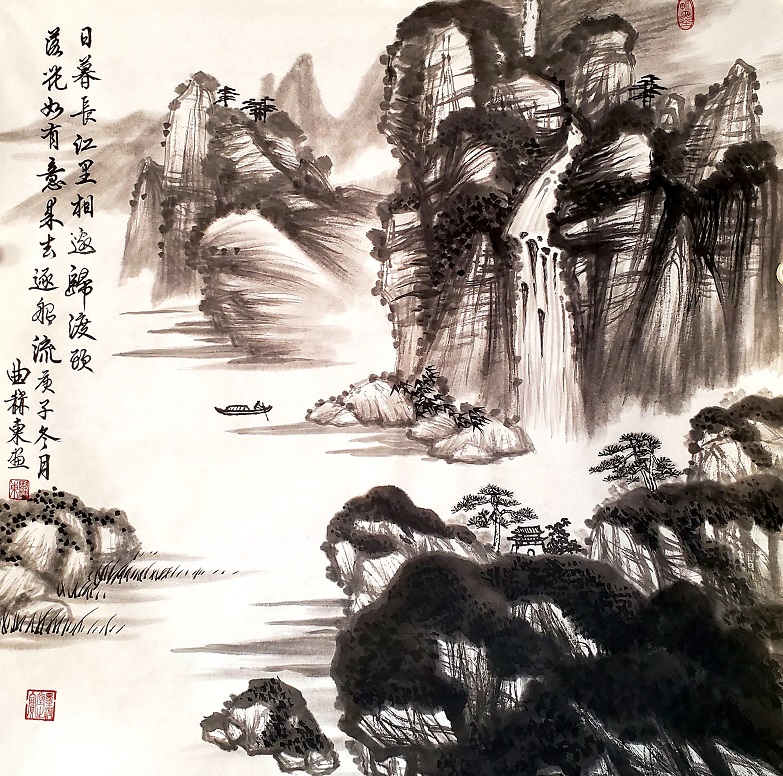 日暮長江里相邀歸渡頭
落花如有意来去逐船流庚子冬月
曲 東画